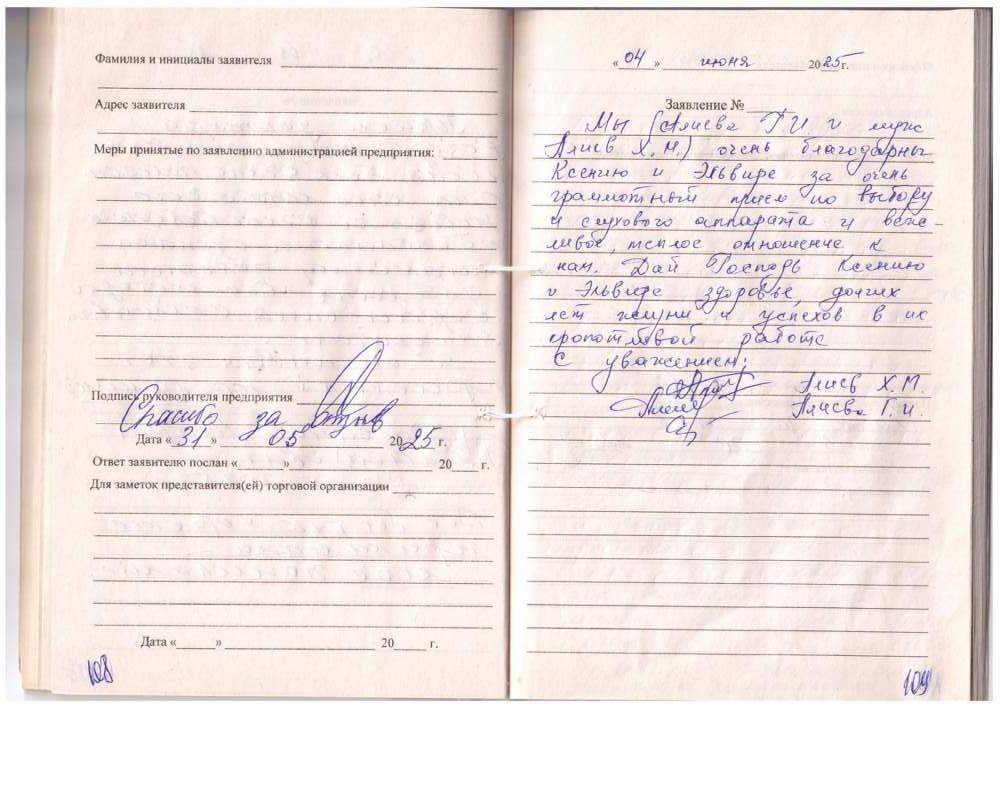 Фамилия и инициалы заявителя
Адрес заявителя
Меры принятые по заявлению администрацией предприятия:
Подпись руководителя предприятия
Спасибо за отзыв
Дата « 31 » 05 2025 г.
Ответ заявителю послан « » 20 г.
Для заметок представителя(ей) торговой организации
Дата « » 20 г.
108
« 04 » июня 2025 г.
Заявление №
Мы (Алиева Г.И. и муж
Алиев Х.М.) очень благодарны
Ксению и Эльвире за очень
грамотный прием по выбору
и слухового аппарата и веж-
ливое, теплое отношение к
нам. Дай Господь Ксению
и Эльвире здоровье, долгих
лет жизни и успехов в их
кропотливой работе
С уважением;
Алиев Х.М.
Алиева Г.И.
109